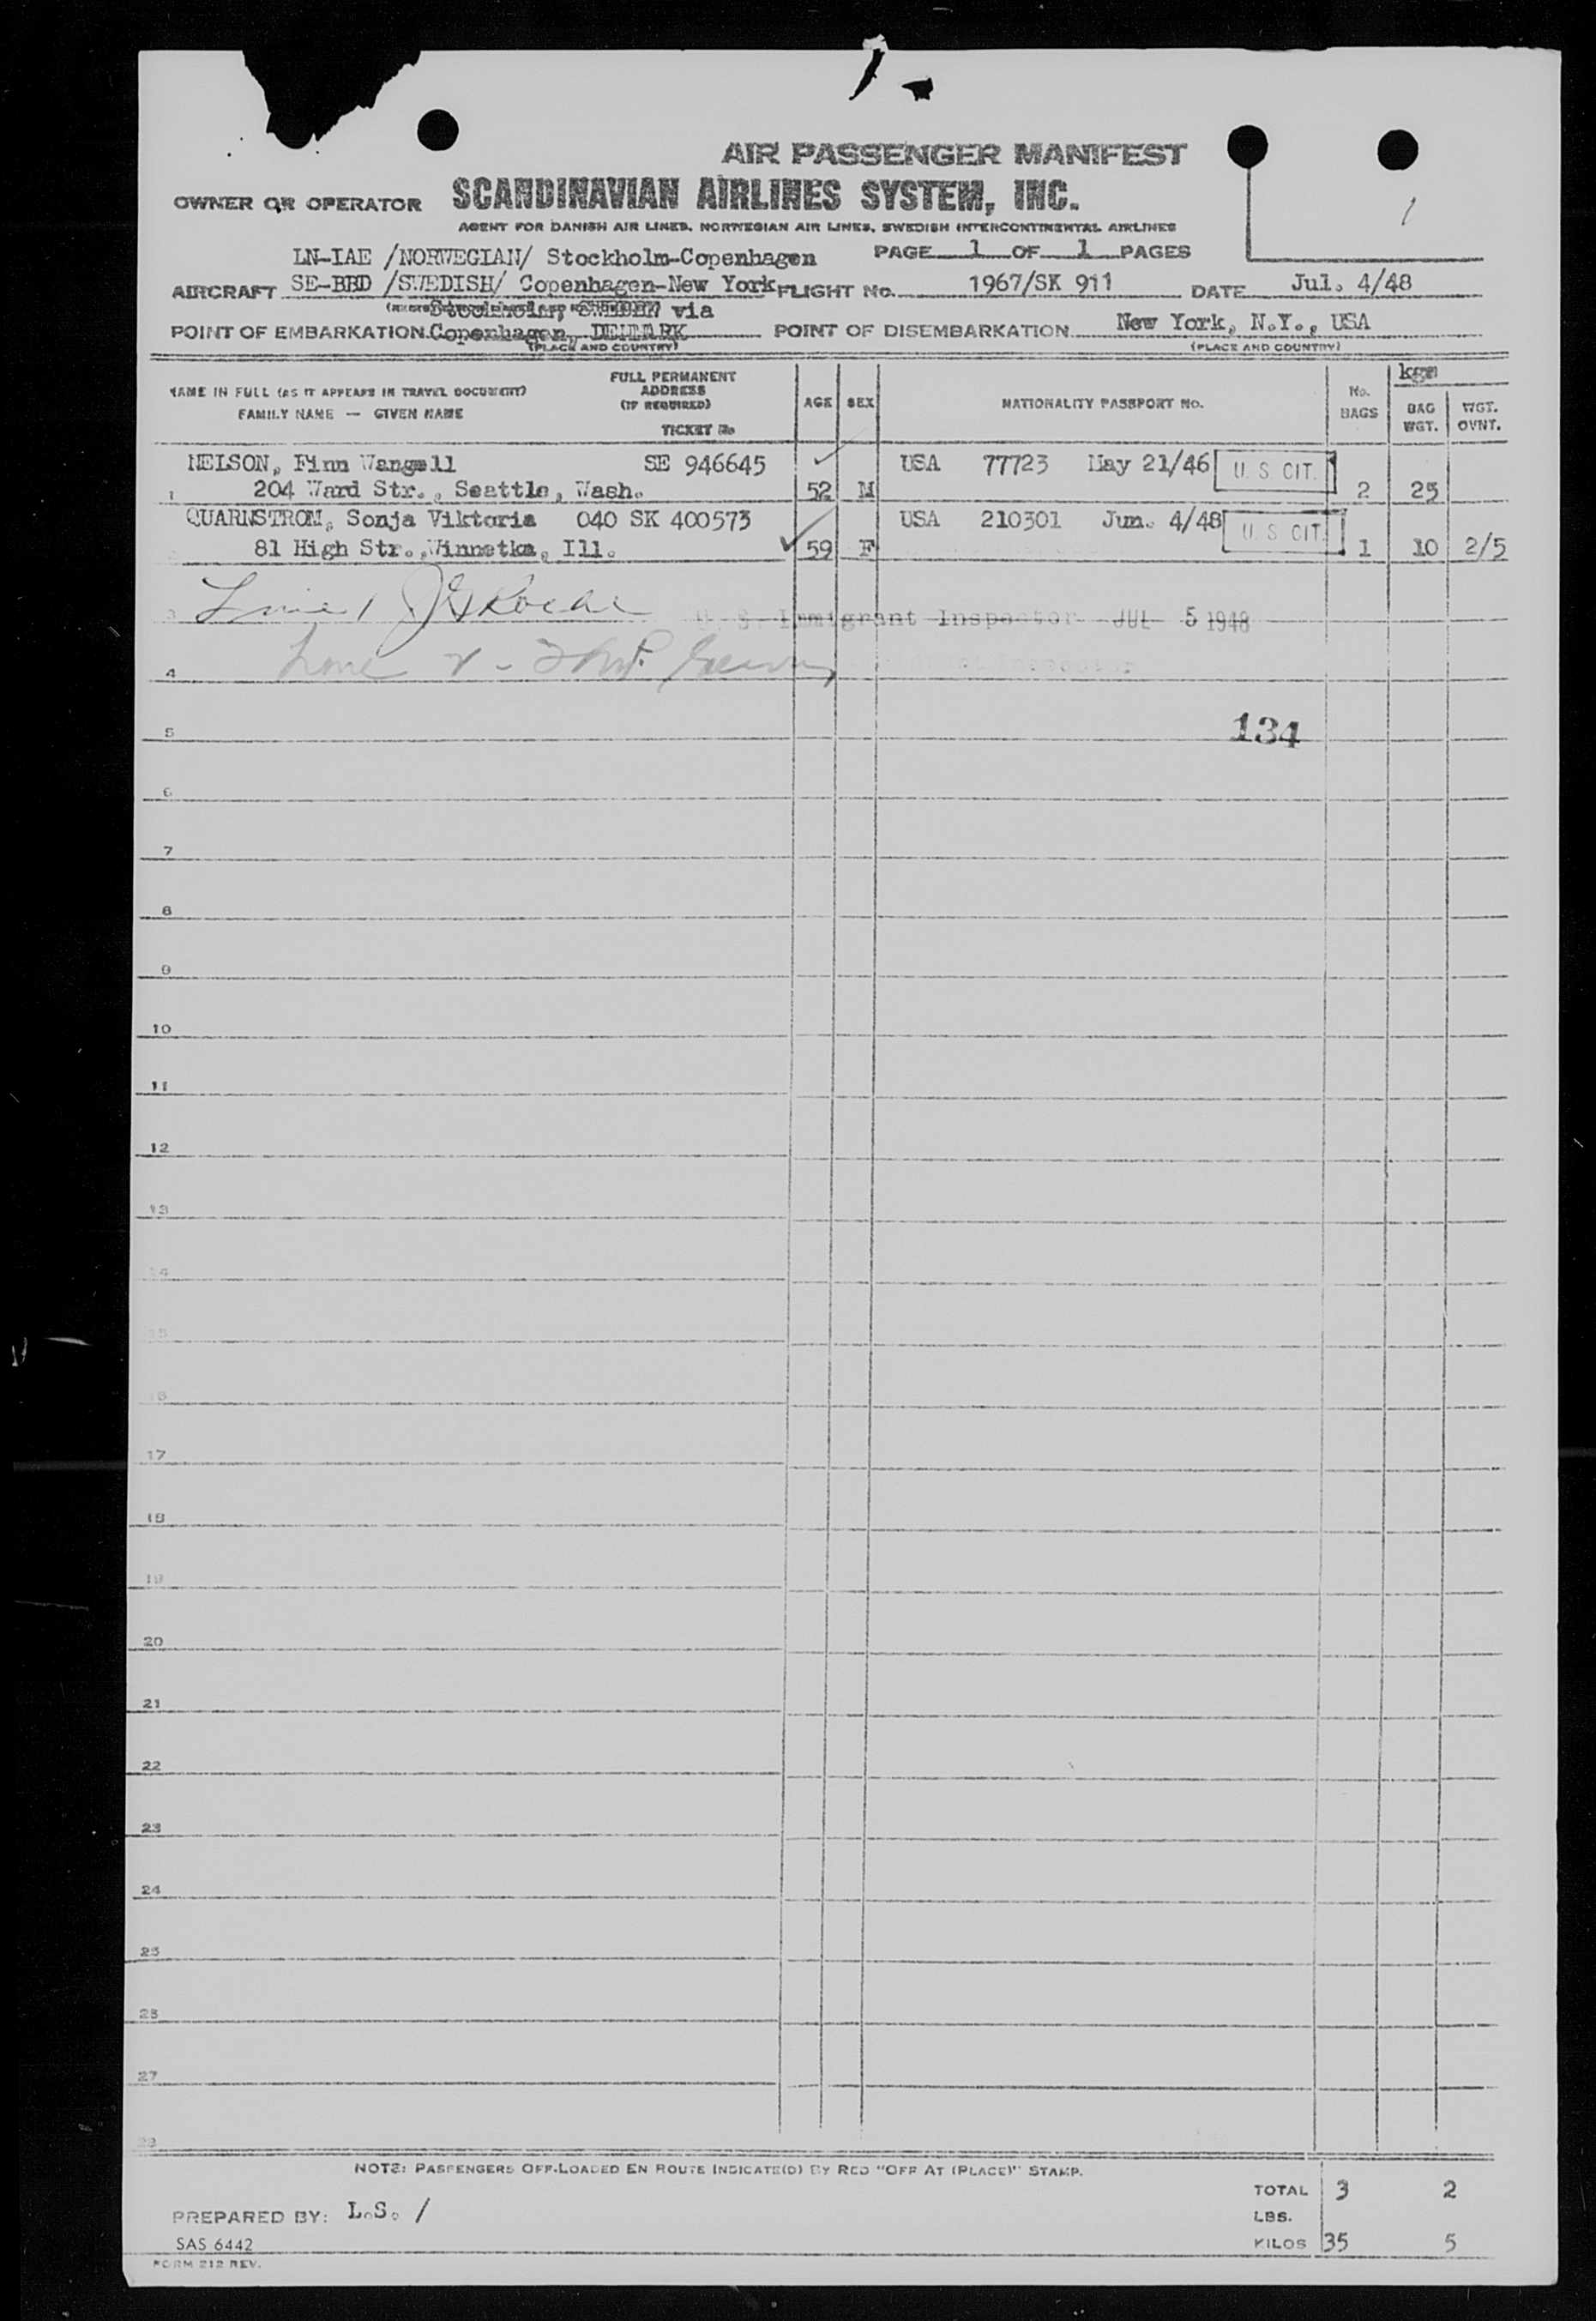 AIR PASSENGER MANIFEST
OWNER OR OPERATOR SCANDINAVIAN AIRLINES SYSTEM, INC.
AGENT FOR DANISH AIR LINES, NORWEGIAN AIR LINES, SWEDISH INTERCONTINENTAL AIRLINES
LN-IAE /NORWEGIAN/ Stockholm-Copenhagen PAGE 1 OF 1 PAGES
AIRCRAFT SE-BBD /SWEDISH/ Copenhagen-New York FLIGHT No. 1967/SK 911 DATE Jul. 4/48
Stockholm, SWEDEN via
POINT OF EMBARKATION Copenhagen, DENMARK POINT OF DISEMBARKATION New York, N.Y., USA
(PLACE AND COUNTRY) (PLACE AND COUNTRY)
NAME IN FULL (AS IT APPEARS IN TRAVEL DOCUMENT)
FAMILY NAME — GIVEN NAME
FULL PERMANENT
ADDRESS
(IF REQUIRED)
TICKET No
AGE
SEX
NATIONALITY PASSPORT No.
No.
BAGS
kgs
BAG
WGT.
WGT.
OVNT.
NELSON, Finn Wangsll SE 946645 USA 77723 May 21/46 U. S CIT.
1 204 Ward Str., Seattle, Wash. 52 M 2 25
QUARNSTROM, Sonja Viktoria 040 SK 400573 USA 210301 Jun. 4/48 U. S CIT.
81 High Str., Winnetka, Ill. 59 F 1 10 2/5
3 Line 1 JG Roche U. S. Immigrant Inspector JUL 5 1948
Line 2 -
4
134
5
6
7
8
9
10
11
12
13
14
15
16
17
18
19
20
21
22
23
24
25
26
27
28
NOTE: PASSENGERS OFF-LOADED EN ROUTE INDICATE(D) BY RED "OFF AT (PLACE)" STAMP.
TOTAL 3 2
PREPARED BY: L.S. /
LBS.
SAS 6442
KILOS 35 5
FORM 212 REV.